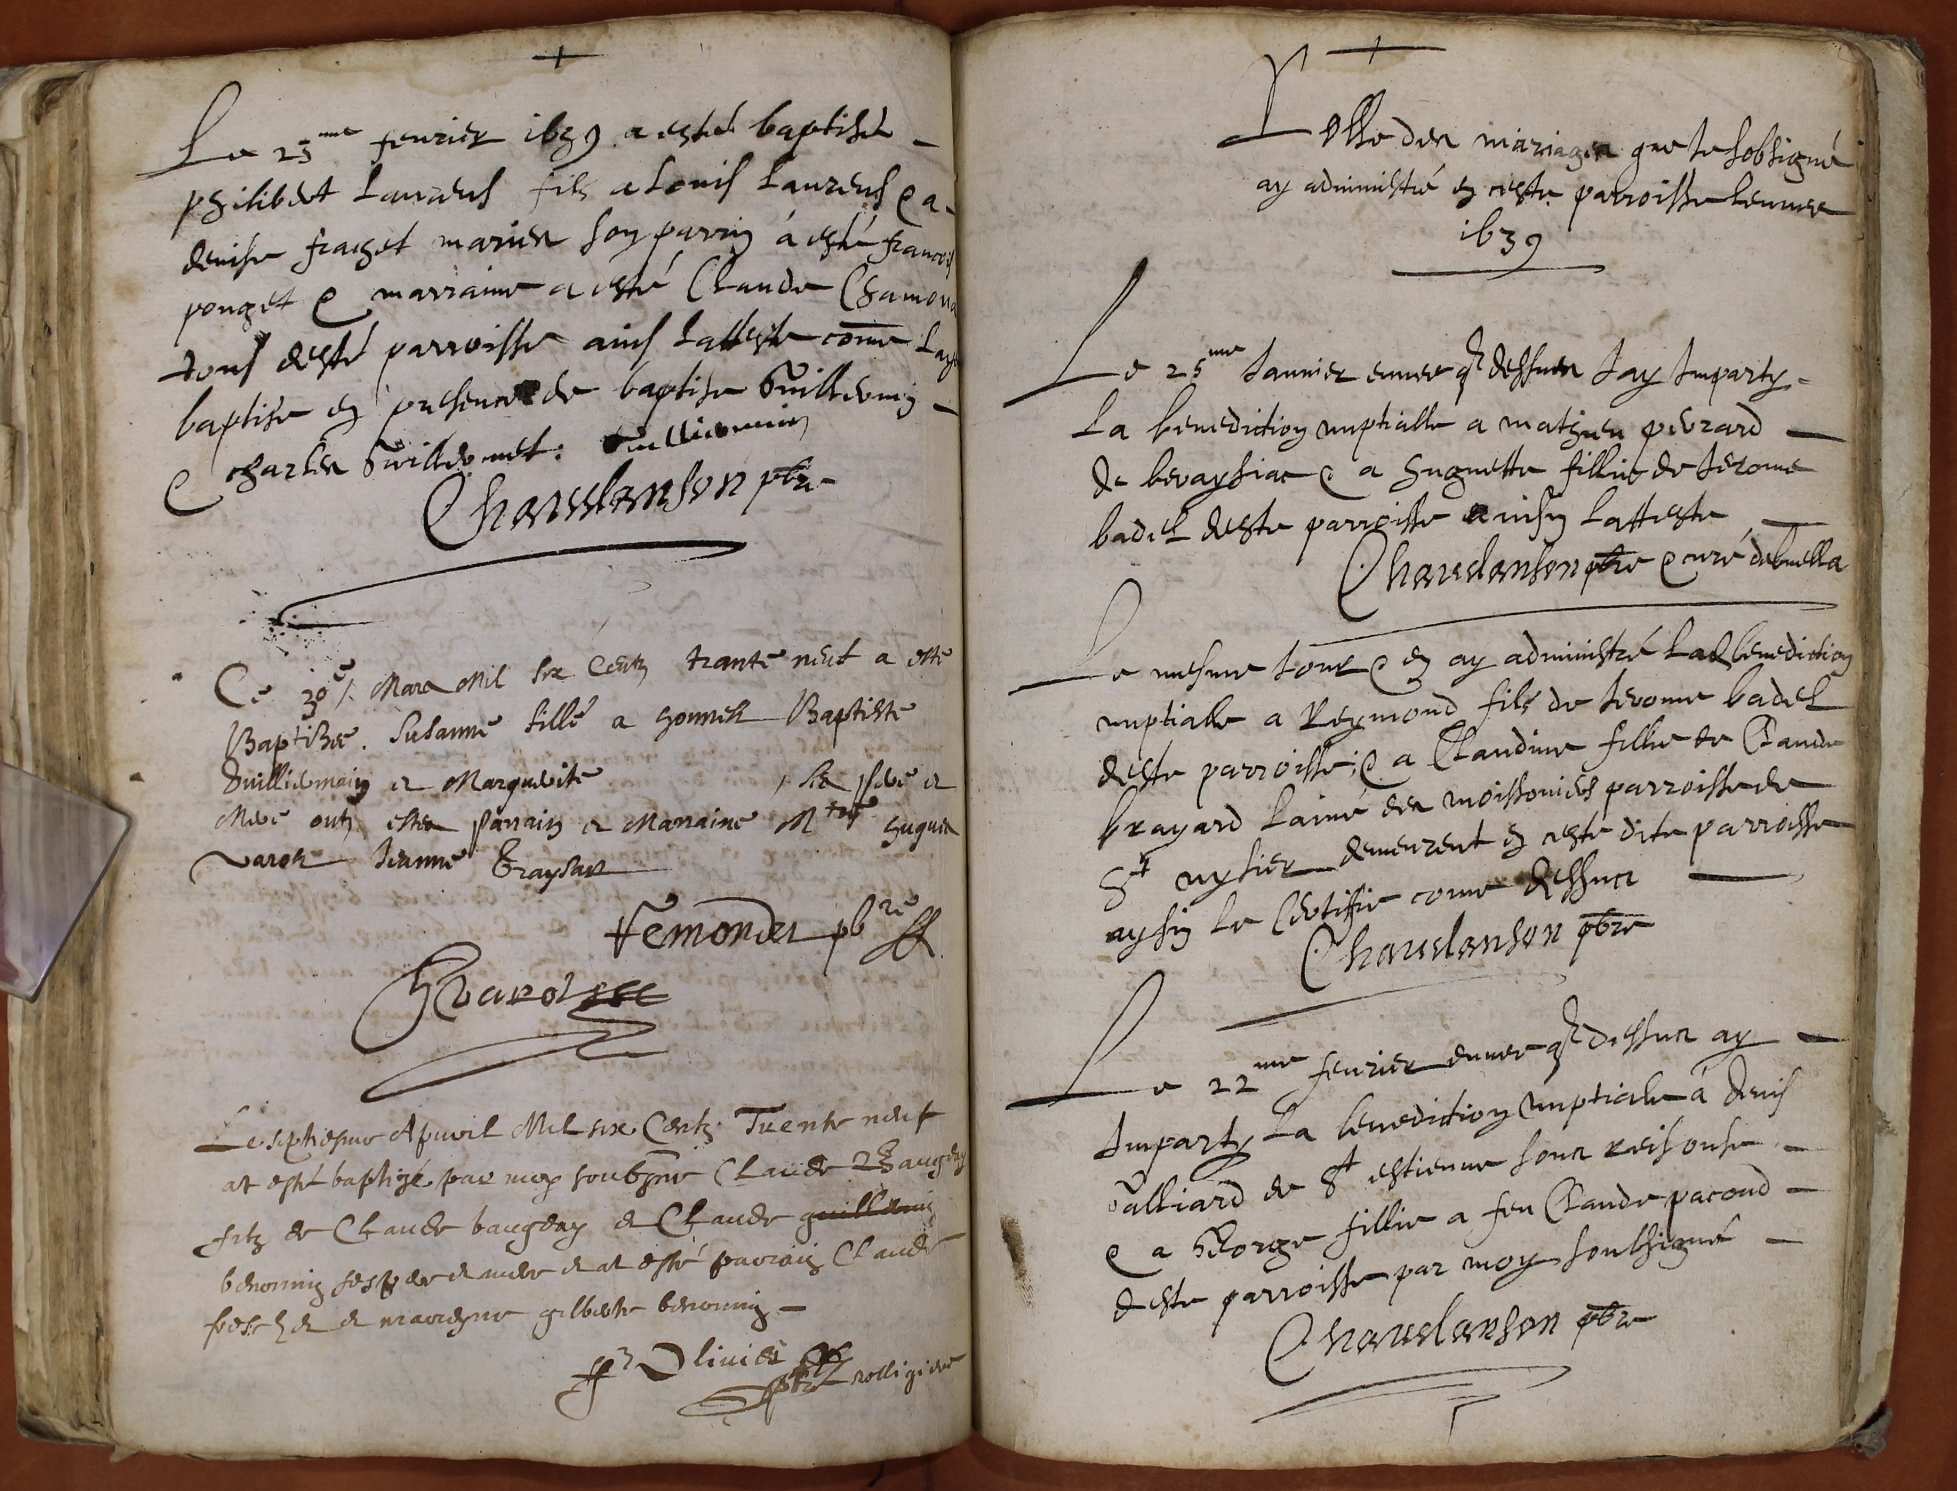 Le 25me feurier 1639 a esté baptisé
philibert Laurens fils a Louis Laurens & a
denise fraget mariea son parrin á esté francois
pouget & marraine a esté Claude
tous desté parroisse ains Latteste comme Lay
baptise en presence de baptise Guilliemin
& charlea Guillermet: Guilliemin
Chauelanson pbre
Ce 30e Mars Mil six Centz trante neuf a esté
Baptizée Susanne fille a honneste Baptiste
Guilliemain et Marguerite ses pere et
Mere ont estea parrain et Marraine Mtre hugues
Varot Jeanne
Remondet pbre
H Varot
Le septiesme Apuril Mil six Centz Trente neuf
at esté baptizé par moy soubsné Claude baugey
filz de Claude baugey et Claude guillemin
benonnin ses pere et mere et at esté parrain Claude
et marreyne gilberte benonnin
fr Olivier pbre relligieux
Rolle dea mariagea que Je sobsigné
ay administré en ceste parroisse lennee
1639
Le 25me Januier ennee q dessuea Jay Imparty
La benediction nuptialle a mathieu peurard
de beraysiat & a huguette fillie de Jerome
badel deste parroisse ainsy Latteste
Chauelanson pbre & curé
Le mesme Jour & en ay administré La benediction
nuptialle a Reymond fils de Jerome badel
deste parroisse & a Claudine fillie de Claude
brayard Lainé dea moissonniers parroisse de
St nysier demeurent en ceste dite parroisse
aysin le Certiffie come dessuea
Chauelanson pbre
Le 22me feurier ennee q dessuea ay
Imparty La benediction nuptialle á denis
Galliard de St estienne soua reisouse
& a George fillie a feu Claude pacoud
deste parroisse par moy soubsigné
Chauelanson pbre